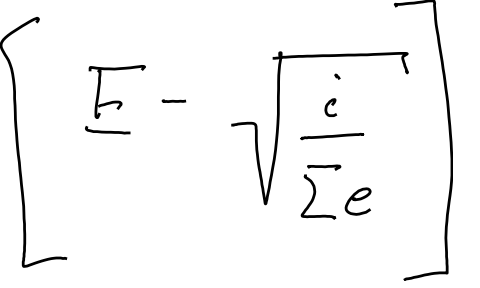 \left[ E - \sqrt{\frac{i}{\sum e}} \right]